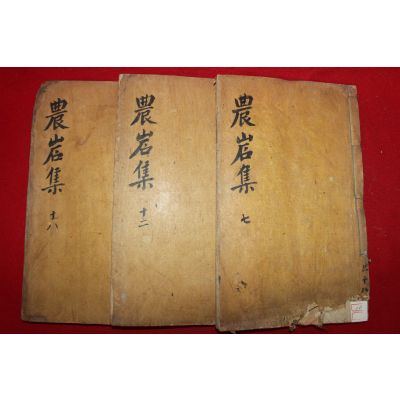 農岩集
七
農岩集
十二
農岩集
十八